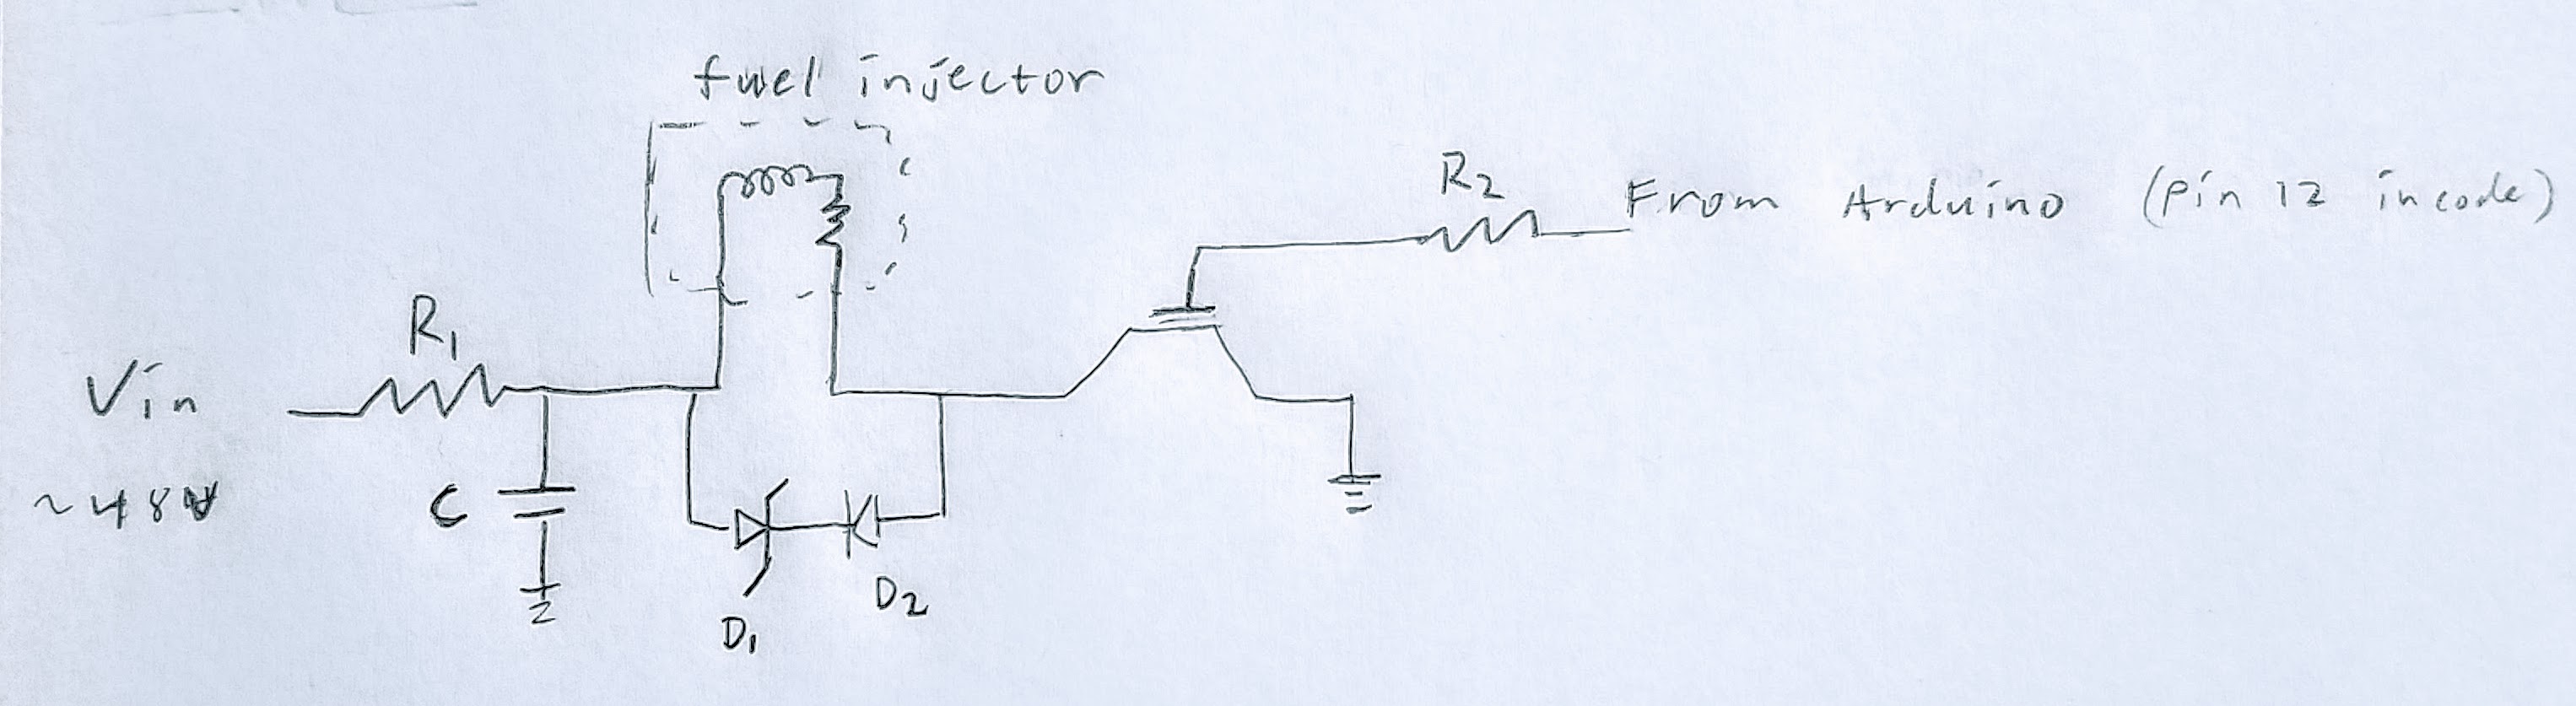 fuel injector
R2 From Arduino (pin 12 in code)
R1
Vin
~48V
C
D1
D2